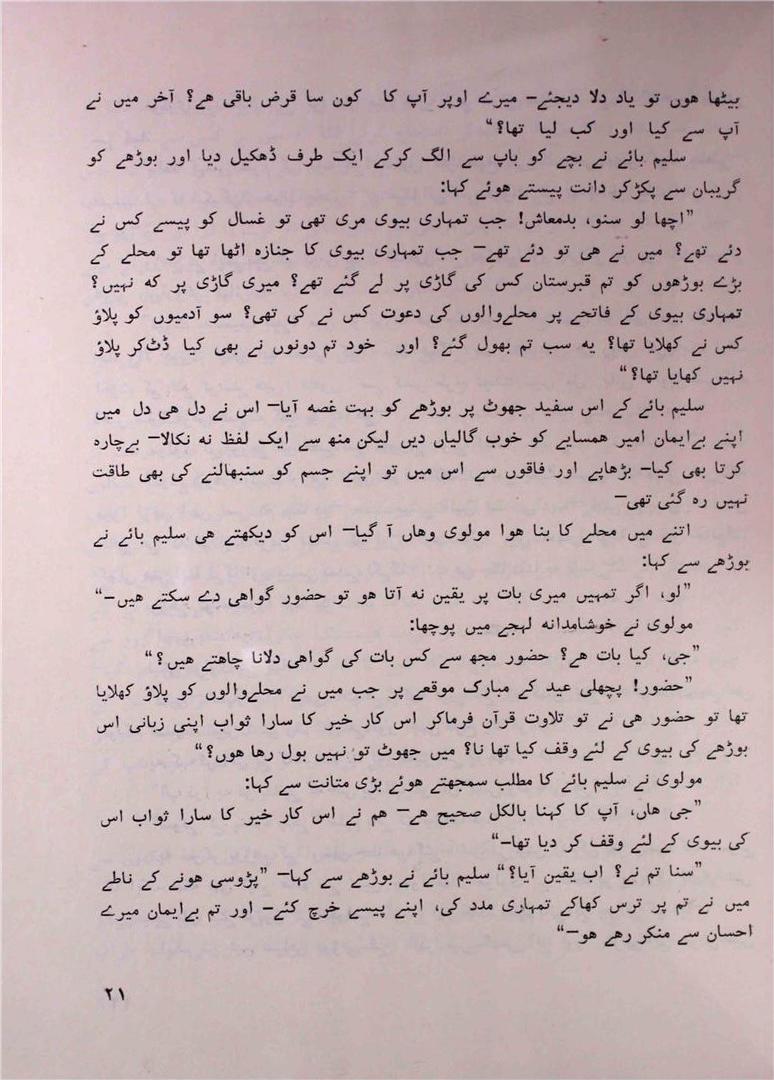 بیٹھا ھوں تو یاد دلا دیجئے— میرے اوپر آپ کا کون سا قرض باقی ھے؟ آخر میں نے
آپ سے کیا اور کب لیا تھا؟“
سلیم بائے نے بچے کو باپ سے الگ کرکے ایک طرف ڈھکیل دیا اور بوڑھے کو
گریبان سے پکڑکر دانت پیستے ھوئے کہا:
”اچھا لو سنو، بدمعاش! جب تمہاری بیوی مری تھی تو غسال کو پیسے کس نے
دئے تھے؟ میں نے ھی تو دئے تھے— جب تمہاری بیوی کا جنازہ اٹھا تھا تو محلے کے
بڑے بوڑھوں کو تم قبرستان کس کی گاڑی پر لے گئے تھے؟ میری گاڑی پر که نہیں؟
تمہاری بیوی کے فاتحے پر محلےوالوں کی دعوت کس نے کی تھی؟ سو آدمیوں کو پلاؤ
کس نے کھلایا تھا؟ یه سب تم بھول گئے؟ اور خود تم دونوں نے بھی کیا ڈٹکر پلاؤ
نہیں کھایا تھا؟“
سلیم بائے کے اس سفید جھوٹ پر بوڑھے کو بہت غصه آیا— اس نے دل ھی دل میں
اپنے بےایمان امیر ھمسایے کو خوب گالیاں دیں لیکن منھ سے ایک لفظ نه نکالا— بےچارہ
کرتا بھی کیا— بڑھاپے اور فاقوں سے اس میں تو اپنے جسم کو سنبھالنے کی بھی طاقت
نہیں رہ گئی تھی—
اتنے میں محلے کا بنا ھوا مولوی وھاں آ گیا— اس کو دیکھتے ھی سلیم بائے نے
بوڑھے سے کہا:
”لو، اگر تمہیں میری بات پر یقین نه آتا ھو تو حضور گواھی دے سکتے ھیں—“
مولوی نے خوشامدانه لہجے میں پوچھا:
”جی، کیا بات ھے؟ حضور مجھ سے کس بات کی گواھی دلانا چاھتے ھیں؟“
”حضور! پچھلی عید کے مبارک موقعے پر جب میں نے محلےوالوں کو پلاؤ کھلایا
تھا تو حضور ھی نے تو تلاوت قرآن فرماکر اس کار خیر کا سارا ثواب اپنی زبانی اس
بوڑھے کی بیوی کے لئے وقف کیا تھا نا؟ میں جھوٹ تو نہیں بول رھا ھوں؟“
مولوی نے سلیم بائے کا مطلب سمجھتے ھوئے بڑی متانت سے کہا:
”جی ھاں، آپ کا کہنا بالکل صحیح ھے— ھم نے اس کار خیر کا سارا ثواب اس
کی بیوی کے لئے وقف کر دیا تھا—“
”سنا تم نے؟ اب یقین آیا؟“ سلیم بائے نے بوڑھے سے کہا— ”پڑوسی ھونے کے ناطے
میں نے تم پر ترس کھاکے تمہاری مدد کی، اپنے پیسے خرچ کئے— اور تم بےایمان میرے
احسان سے منکر رھے ھو—“
۲۱